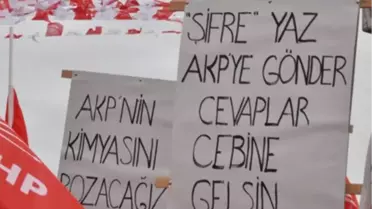 "ŞİFRE" YAZ
AKP'YE GÖNDER
CEVAPLAR
CEBİNE
GELSİN
AKP'NİN
KİMYASINI
BOZACAĞIZ
HP